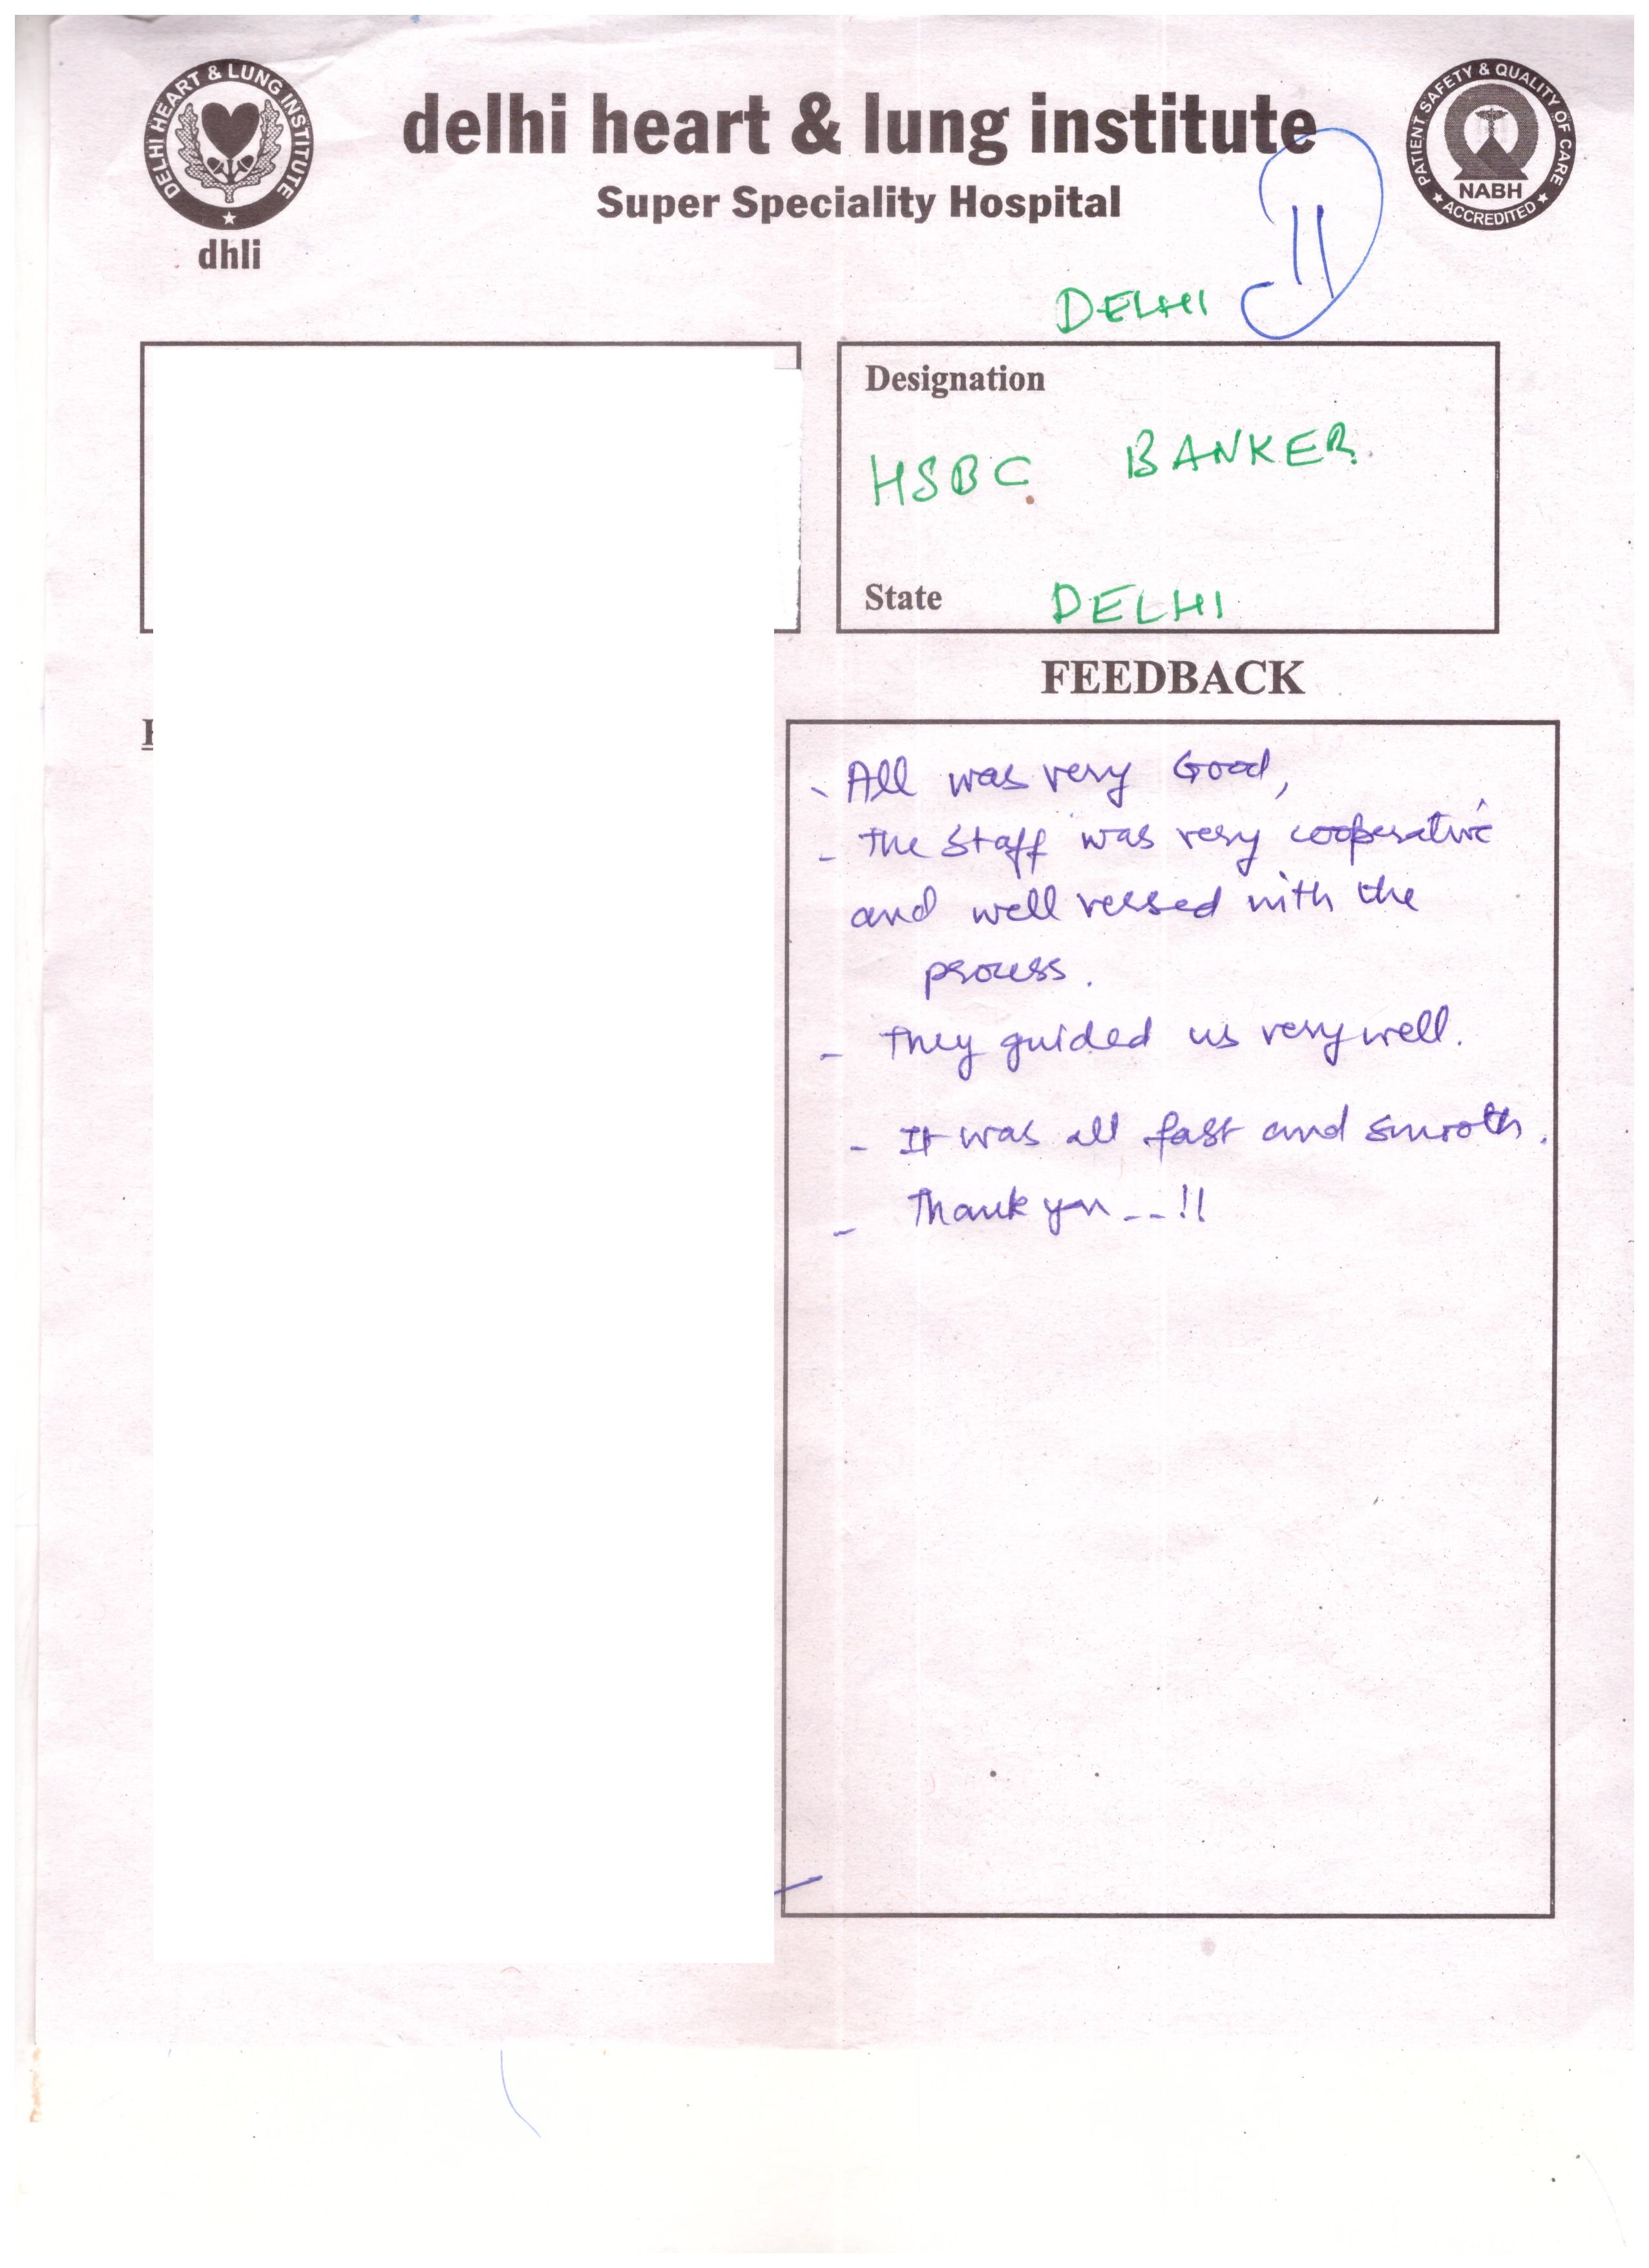 DELHI HEART & LUNG INSTITUTE
dhli
delhi heart & lung institute
Super Speciality Hospital
PATIENT SAFETY & QUALITY OF CARE
NABH
ACCREDITED
DELHI
Designation
HSBC BANKER
State DELHI
FEEDBACK
- All was very Good,
- The Staff was very cooperative
and well versed with the
process.
- They guided us very well.
- It was all fast and smooth.
- Thank you --!!